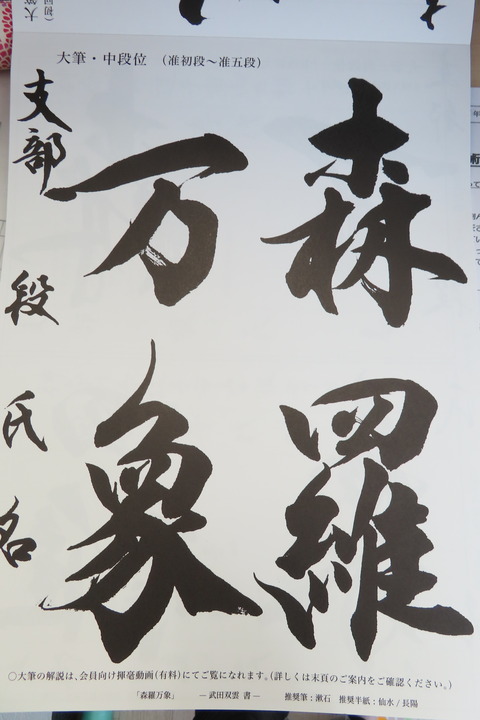 大筆・中段位 （准初段〜准五段）
森羅
万象
支部 段 氏名
○大筆の解説は、会員向け揮毫動画(有料)にてご覧になれます。(詳しくは末頁のご案内をご確認ください。)
「森羅万象」 ― 武田双雲 書 ― 推奨筆：漱石 推奨半紙：仙水/長陽